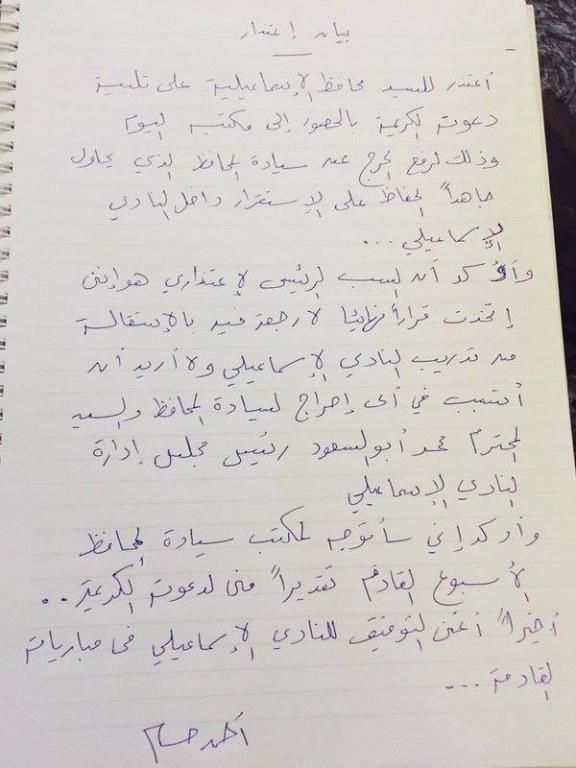 بيان إعتذار
أعتذر للسيد محافظ الإسماعيلية على تلبية
دعوته الكريمة بالحضور إلى مكتبه اليوم
وذلك لرفع الحرج عن سيادة المحافظ الذي يحاول
جاهداً الحفاظ على الإستقرار داخل النادي
الإسماعيلي ...
وأؤكد أن السبب الرئيسي لإعتذاري هو إنني
إتخذت قراراً نهائياً لا رجعة فيه بالإستقالة
من تدريب النادي الإسماعيلي ولا أريد أن
أتسبب في أى إحراج لسيادة المحافظ والسيد
المحترم محمد أبو السعود رئيس مجلس إدارة
النادي الإسماعيلي
وأؤكد إني سأتوجه لمكتب سيادة المحافظ
الأسبوع القادم تقديراً منى لدعوته الكريمة ..
أخيراً أتمنى التوفيق للنادي الإسماعيلي فى مبارياته
القادمة ...
أحمد حسام